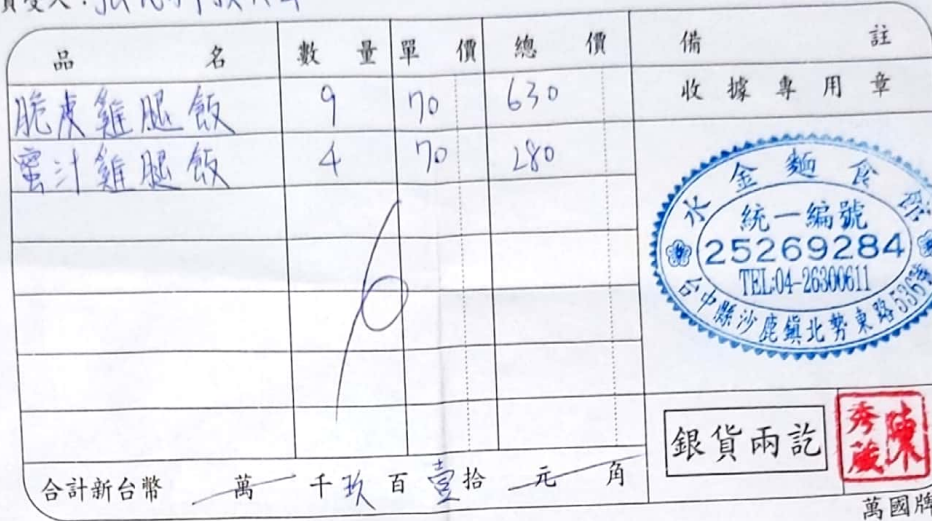 買受人：
品名 數量 單價 總價 備註
脆皮雞腿飯 9 70 630
蜜汁雞腿飯 4 70 280
收據專用章
水金麵食館
統一編號
25269284
TEL:04-26300611
台中縣沙鹿鎮北勢東路536號
銀貨兩訖
陳秀
合計新台幣 萬 千 玖 百 壹 拾 元 角
萬國牌